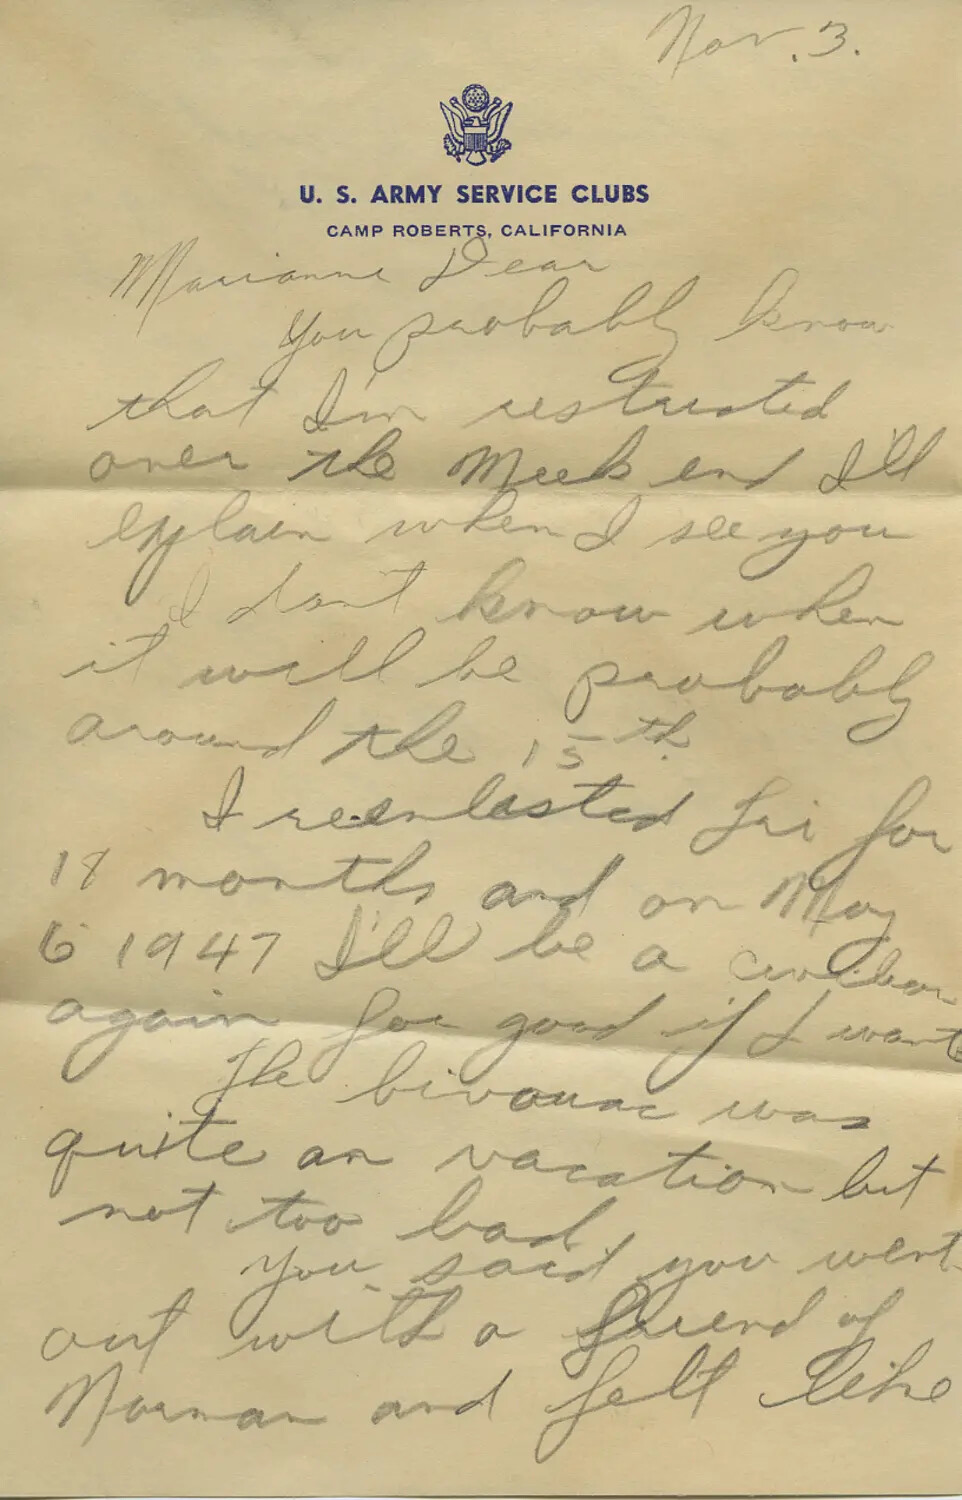 Nov. 3.
U. S. ARMY SERVICE CLUBS
CAMP ROBERTS, CALIFORNIA
Marianne Dear
You probably know
that I'm restricted
over the Week end I'll
explain when I see you
I don't know when
it will be probably
around the 15th.
I reenlisted Fri for
18 months and on May
6 1947 I'll be a civilian
again for good if I want
The bivouac was
quite an vacation but
not too bad.
You said you went
out with a friend of
Norman and felt like